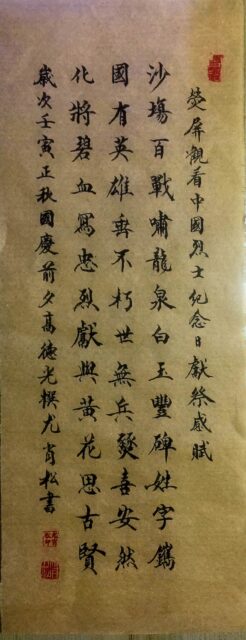 熒屏觀看中國烈士纪念日獻祭感賦
沙塲百戰嘯龍泉白玉豐碑姓字鐫
國有英雄垂不朽世無兵燹喜安然
化將碧血寫忠烈獻與黃花思古賢
歲次壬寅正秋國慶前夕高德光撰尤肖松書